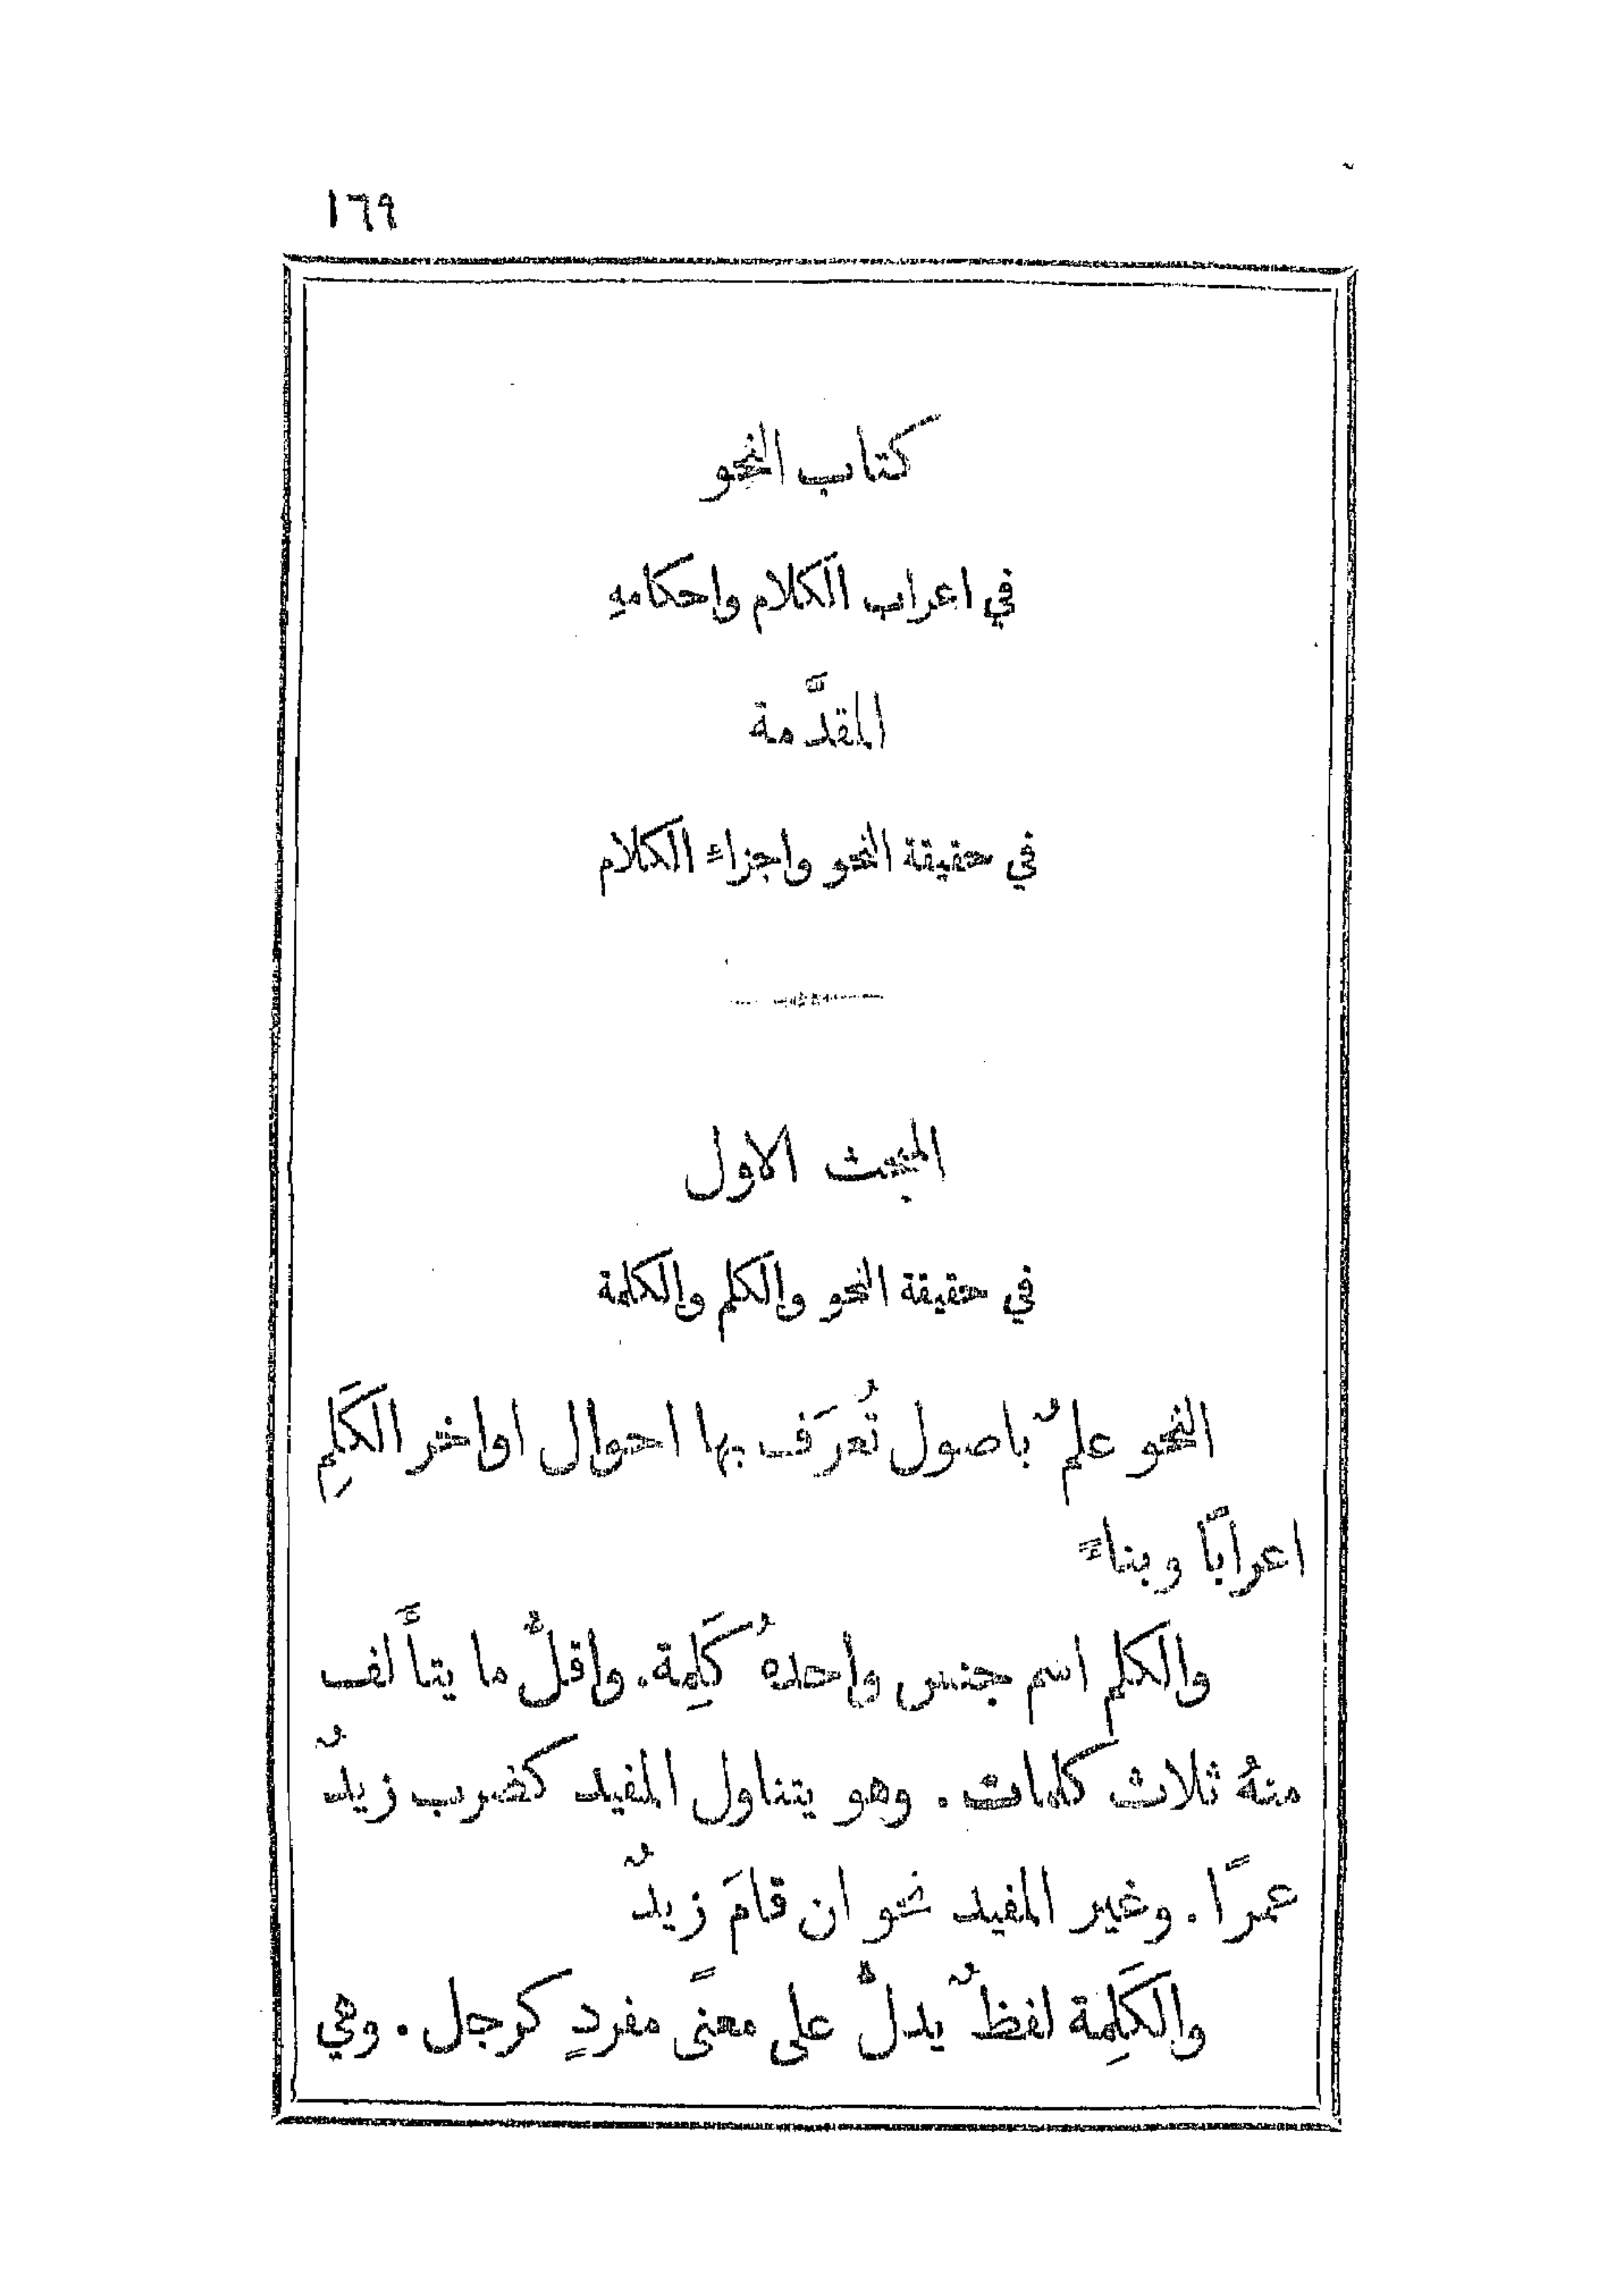 ١٦٩
كتاب النحو
في اعراب الكلام واحكامهِ
المقدَّمة
في حقيقة النحو واجزاء الكلام
المبحث الاول
في حقيقة النحو والكلم والكلمة
النحو علمٌ باصول تُعرَف بها احوال اواخر الكَلِمِ
اعرابًا وبناءً
والكلم اسم جنس واحدهُ كَلِمة. واقلُّ ما يتأَلف
منهُ ثلاث كلمات. وهو يتناول المفيد كضرب زيدٌ
عمرًا. وغير المفيد نحو ان قامَ زيدٌ
والكَلِمة لفظٌ يدلُّ على معنًى مفردٍ كرجل. وهي